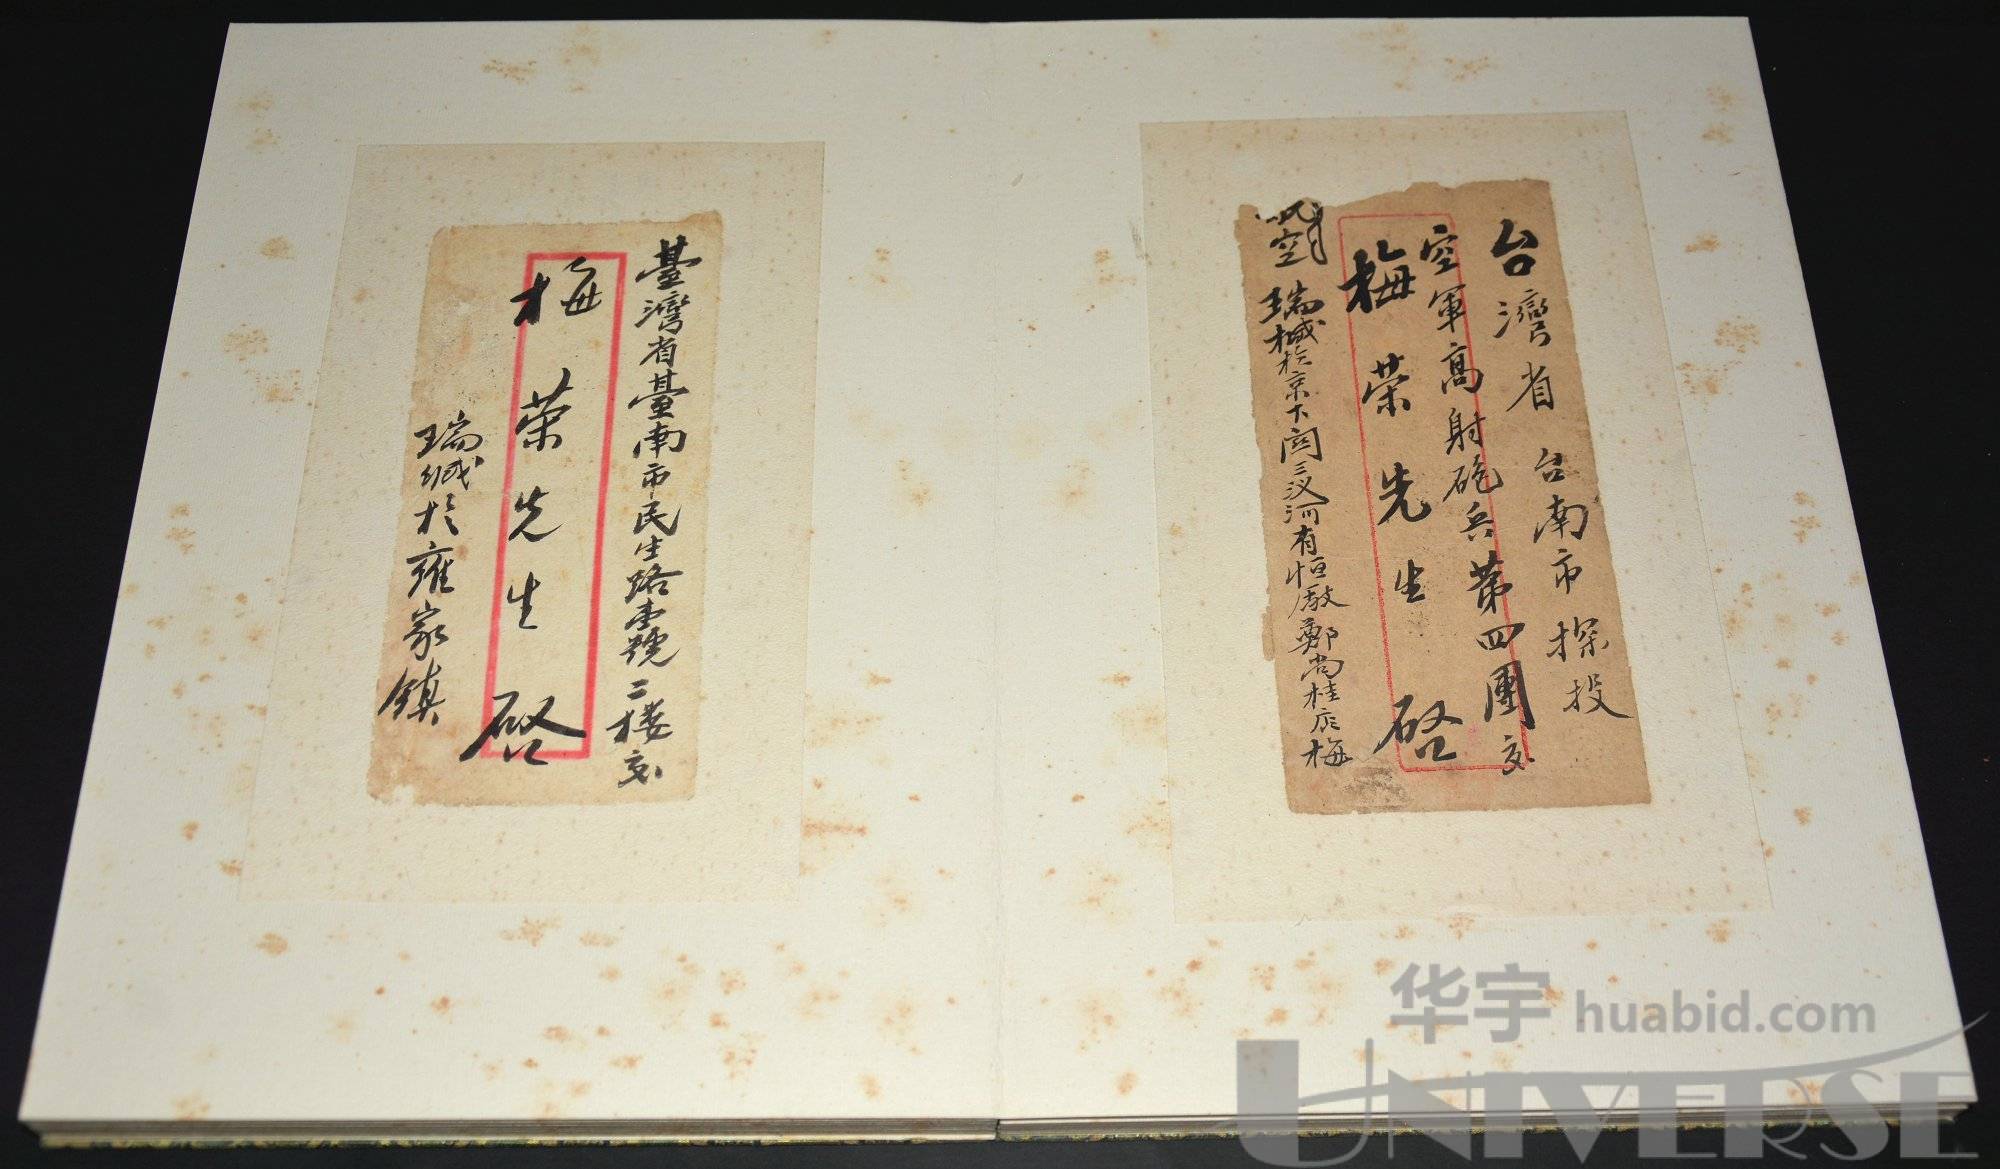 台灣省台南市探投
空軍高射砲兵第四團交
梅榮先生啓
航空
瑞緘於京下関三汊河有恒厰鄭尚桂店梅
臺灣省臺南市民生路壹號二楼交
梅榮先生啓
瑞緘於雍家鎮
华宇 huabid.com
UNIVERSE